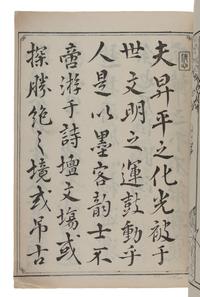 夫昇平之化光被于
世文明之運鼓動乎
人是以墨客韵士不
啻游于詩壇文場或
探勝絶之境或吊古